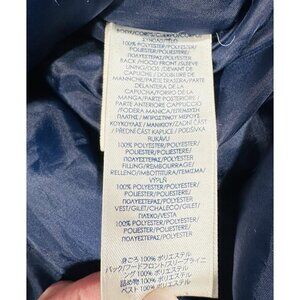 BODY/CORPS/CUERPO/CORPO/
100% POLYESTER/POLYESTER/
POLIESTERE/POLIESTERE/
ΠΟΛΥΕΣΤΕΡΑΣ/POLYESTER
BACK /HOOD FRONT/SLEEVE
LINING/DOS/DEVANT DE
CAPUCHE / DOUBLURE DE
MANCHE/PARTE TRASERA/PARTE
DELANTERA DE LA
CAPUCHA/FORRO DE LA
MANGA/PARTE POSTERIORE/
PARTE ANTERIORE CAPPUCCIO
/FODERA MANICA/
ΚΟΥΚΟΥΛΑΣ / ΜΑΝΙΚΙΟΥ/ZADNÍ ČÁST
/ PŘEDNÍ ČÁST KAPUCE / PODŠÍVKA
RUKÁVU
100% POLYESTER/POLYESTER/
POLIESTER/POLIESTERE/
ΠΟΛΥΕΣΤΕΡΑΣ/POLYESTER
FILLING/REMBOURRAGE/
RELLENO/IMBOTTITURA/ΓΕΜΙΣΜΑ/
VÝPLŇ
100% POLYESTER/POLYESTER/
POLIESTER/POLIESTERE/
ΠΟΛΥΕΣΤΕΡΑΣ/POLYESTER
VEST/GILET/CHALECO/GILET/
VESTA
100% POLYESTER/POLYESTER/
POLIESTER/POLIESTERE/
ΠΟΛΥΕΣΤΕΡΑΣ/POLYESTER
身ごろ 100% ポリエステル
バック/フードフロント/スリーブライニ
ング 100% ポリエステル
詰め物 100% ポリエステル
ベスト 100% ポリエステル